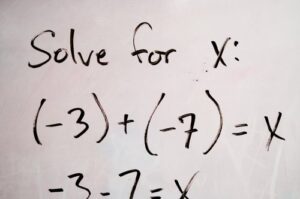 Solve for x:
(-3)+(-7)=x
-3-7=x